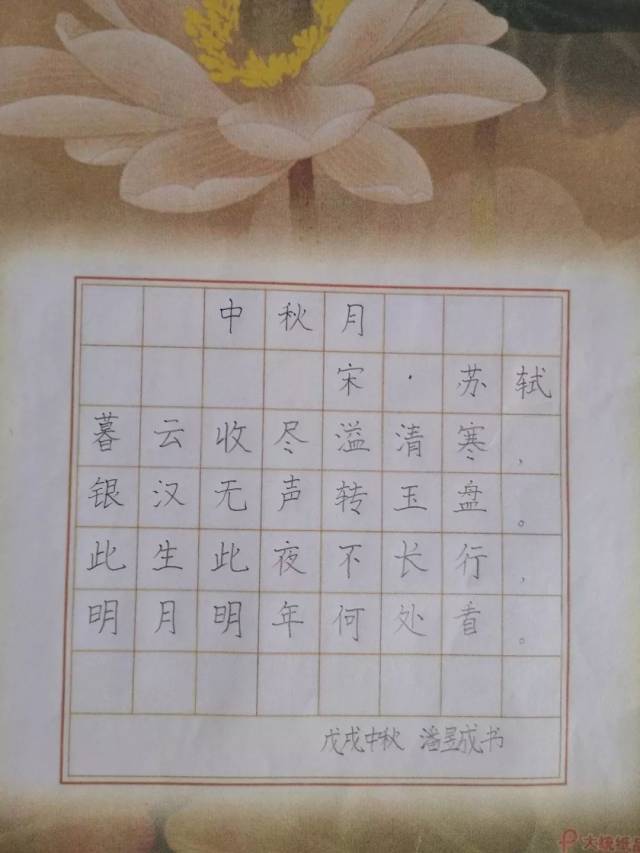 中秋月
宋·苏轼
暮云收尽溢清寒，
银汉无声转玉盘。
此生此夜不长行，
明月明年何处看。
戊戌中秋 潘昱成书